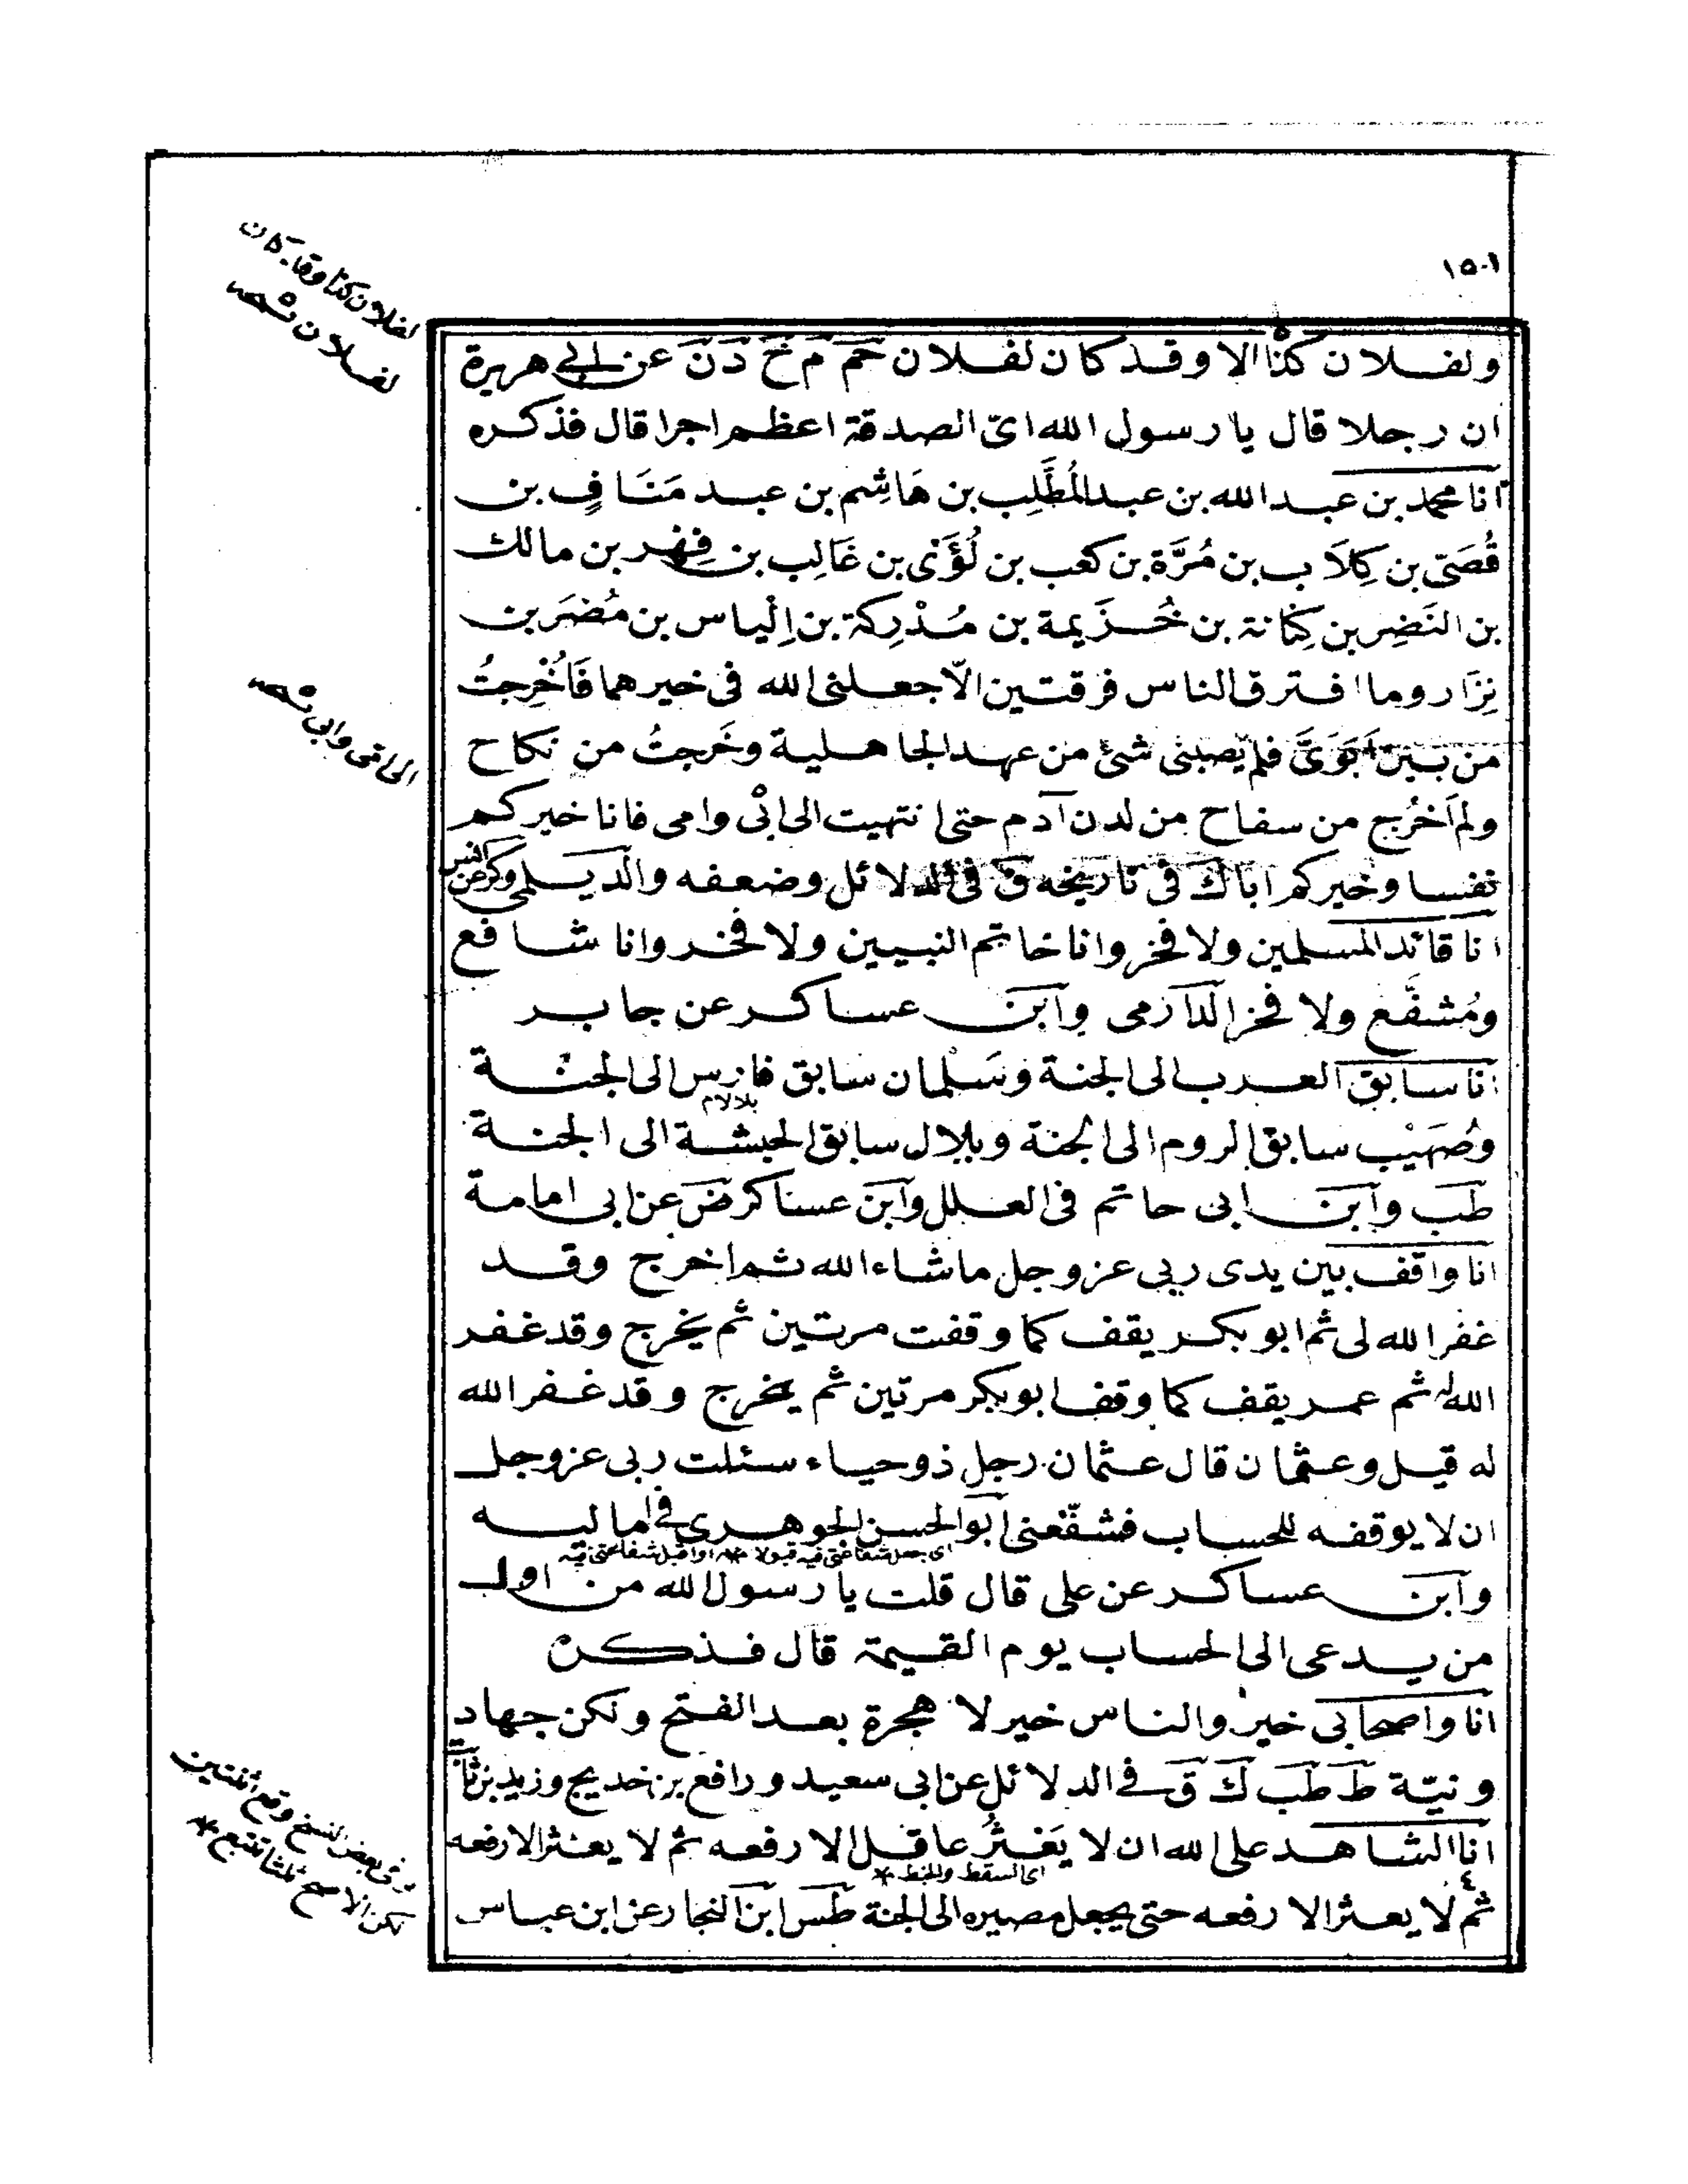 ١٥٠١
ولفلان كذا الا وقد كان لفلان حم م خ د ن عن ابى هريرة
ان رجلا قال يا رسول الله اىّ الصدقة اعظم اجرا قال فذكره
انا محمد بن عبد الله بن عبد المُطَّلِب بن هَاشِم بن عبد مَنَافٍ بن
قُصَىّ بن كِلَاب بن مُرَّة بن كعب بن لُؤَىّ بن غَالِب بن فِهْر بن مالك
بن النَضِر بن كِنَانة بن خُزَيمة بن مُدْرِكة بن اِلْياس بن مُضَر بن
نِزَار وما افترق الناس فرقتين الّا جعلنى الله فى خيرهما فَاُخْرِجتُ
من بين اَبَوَىَّ فلم يصبنى شئ من عهد الجاهلية وخَرجتُ من نكاح
ولم اَخرُج من سفاح من لدن آدم حتى انتهيت الى ابى وامى فانا خيركم
نفسا وخيركم ابا ك فى تاريخه ق فى الدلائل وضعفه والديلمى وكر عن انس
انا قائد المسلمين ولا فخر وانا خاتم النبيين ولا فخر وانا شافع
ومُشفَّع ولا فخر الدارمى وابن عساكر عن جابر
انا سابق العرب الى الجنة وسَلْمان سابق فارس الى الجنة
بلالام
وصُهَيْب سابق الروم الى الجنة وبلال سابق الحبشة الى الجنة
طب وابن ابى حاتم فى العلل وابن عساكر ض عن ابى امامة
انا واقف بين يدى ربى عز وجل ما شاء الله ثم اخرج وقد
غفر الله لى ثم ابو بكر يقف كما وقفت مرتين ثم يخرج وقد غفر
الله له ثم عمر يقف كما وقف ابو بكر مرتين ثم يخرج وقد غفر الله
له قيل وعثمان قال عثمان رجل ذو حياء سئلت ربى عز وجل
ان لا يوقفه للحساب فشفّعنى ابو الحسن الجوهرى فى اماليه
اى جعل شفاعتى فيه قبولا او اقبل شفاعتى فيه
وابن عساكر عن على قال قلت يا رسول الله من اول
من يدعى الى الحساب يوم القيمة قال فذكره
انا واصحابى خير والناس خير لا هجرة بعد الفتح ولكن جهاد
ونيّة ط طب ك ق فى الدلائل عن ابى سعيد ورافع بن خديج وزيد بن ثابت
انا الشاهد على الله ان لا يَعْثُر عاقل الا رفعه ثم لا يعثر الا رفعه
اى السقط والخبط
ثم ٤ لا يعثر الا رفعه حتى يجعل مصيره الى الجنة طس ابن النجار عن ابن عباس
لفلان كذا وقد كان
لفلان نسخه
الى امى وابى نسخه
وفى بعض النسخ وقع اثنتين
لكن الاصح ثلثا تتبع